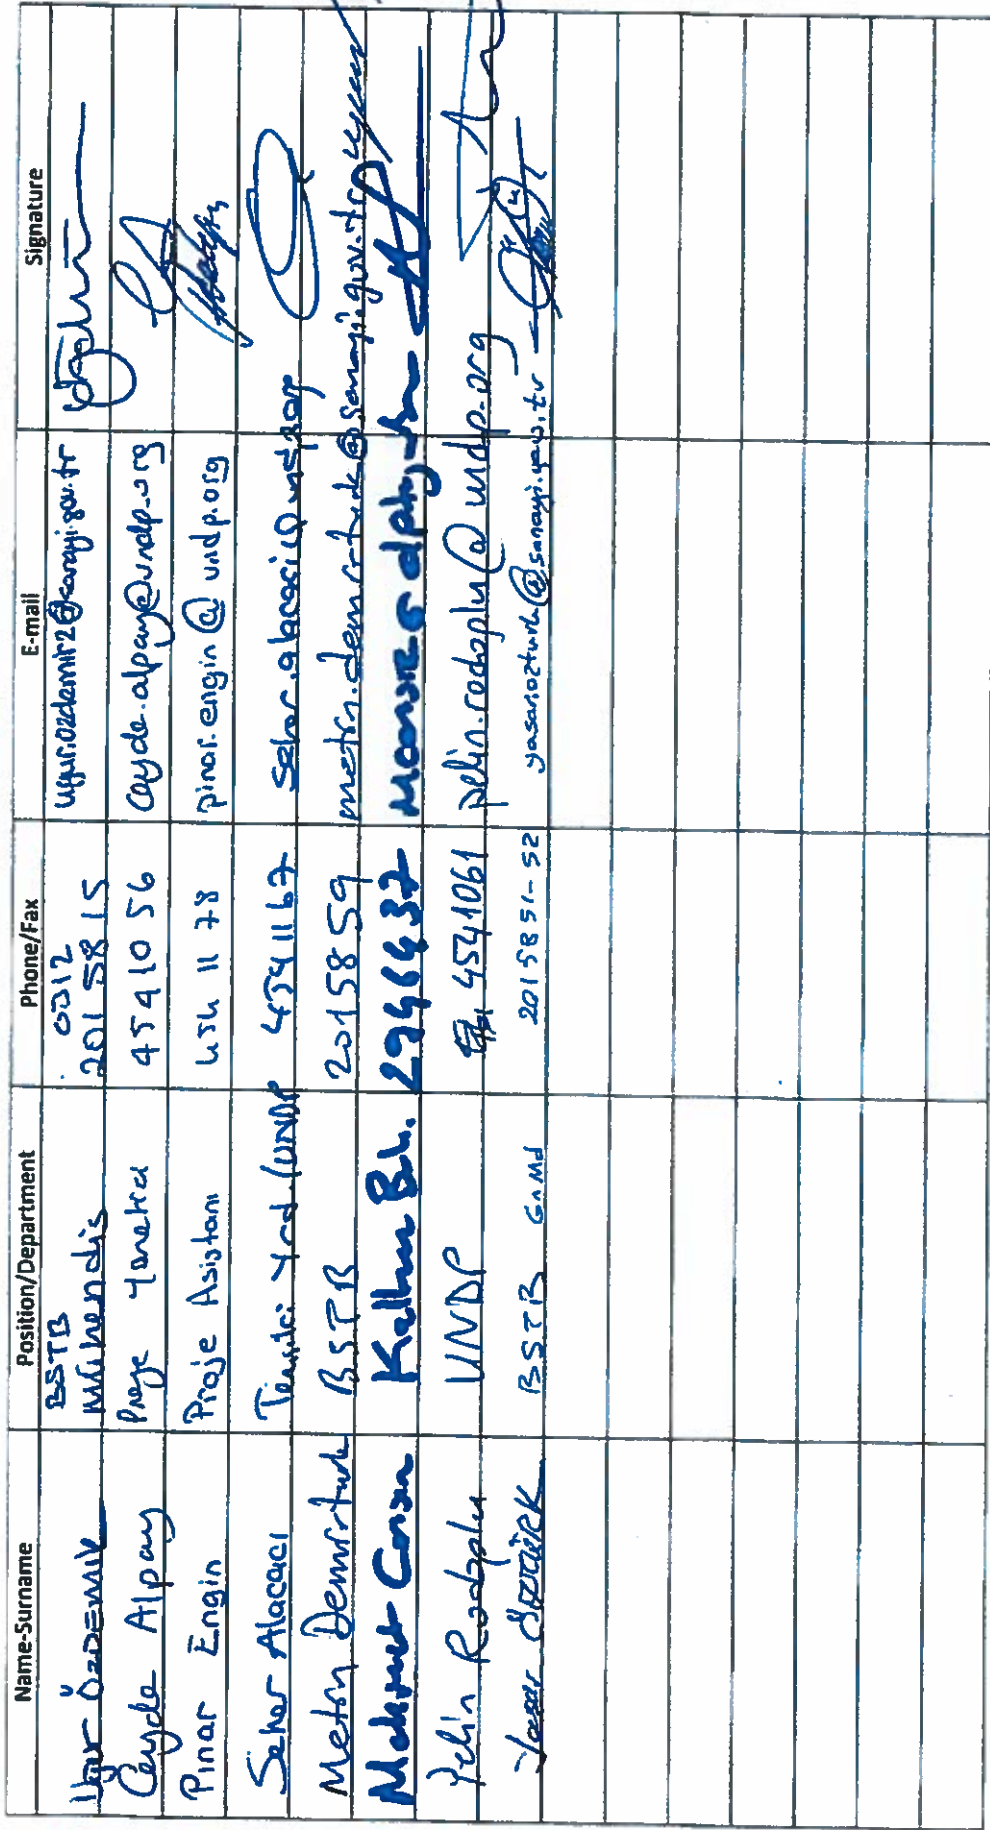 Name-Surname Position/Department Phone/Fax E-mail Signature
BSTB 0312
Uğur ÖZDEMİR Mühendis 2015815 ugur.ozdemir2@sanayi.gov.tr
Ceyda Alpay Proje Yöneticisi 4541056 ceyda.alpay@undp.org
Pınar Engin Proje Asistanı 454 11 78 pinar.engin@undp.org
Seher Alacacı Temsilci Yrd (UNDP 4541167 seher.alacaci@undp.org
Metin Demirtürk BSTB 2015859 metin.demirturk@sanayi.gov.tr
Mehmet Kalkınma Bak. 2946437
Pelin Rodoplu UNDP 4541061 pelin.rodoplu@undp.org
Yaşar ÖZTÜRK BSTB Gn Md 2015851-52 yasar.ozturk@sanayi.gov.tr